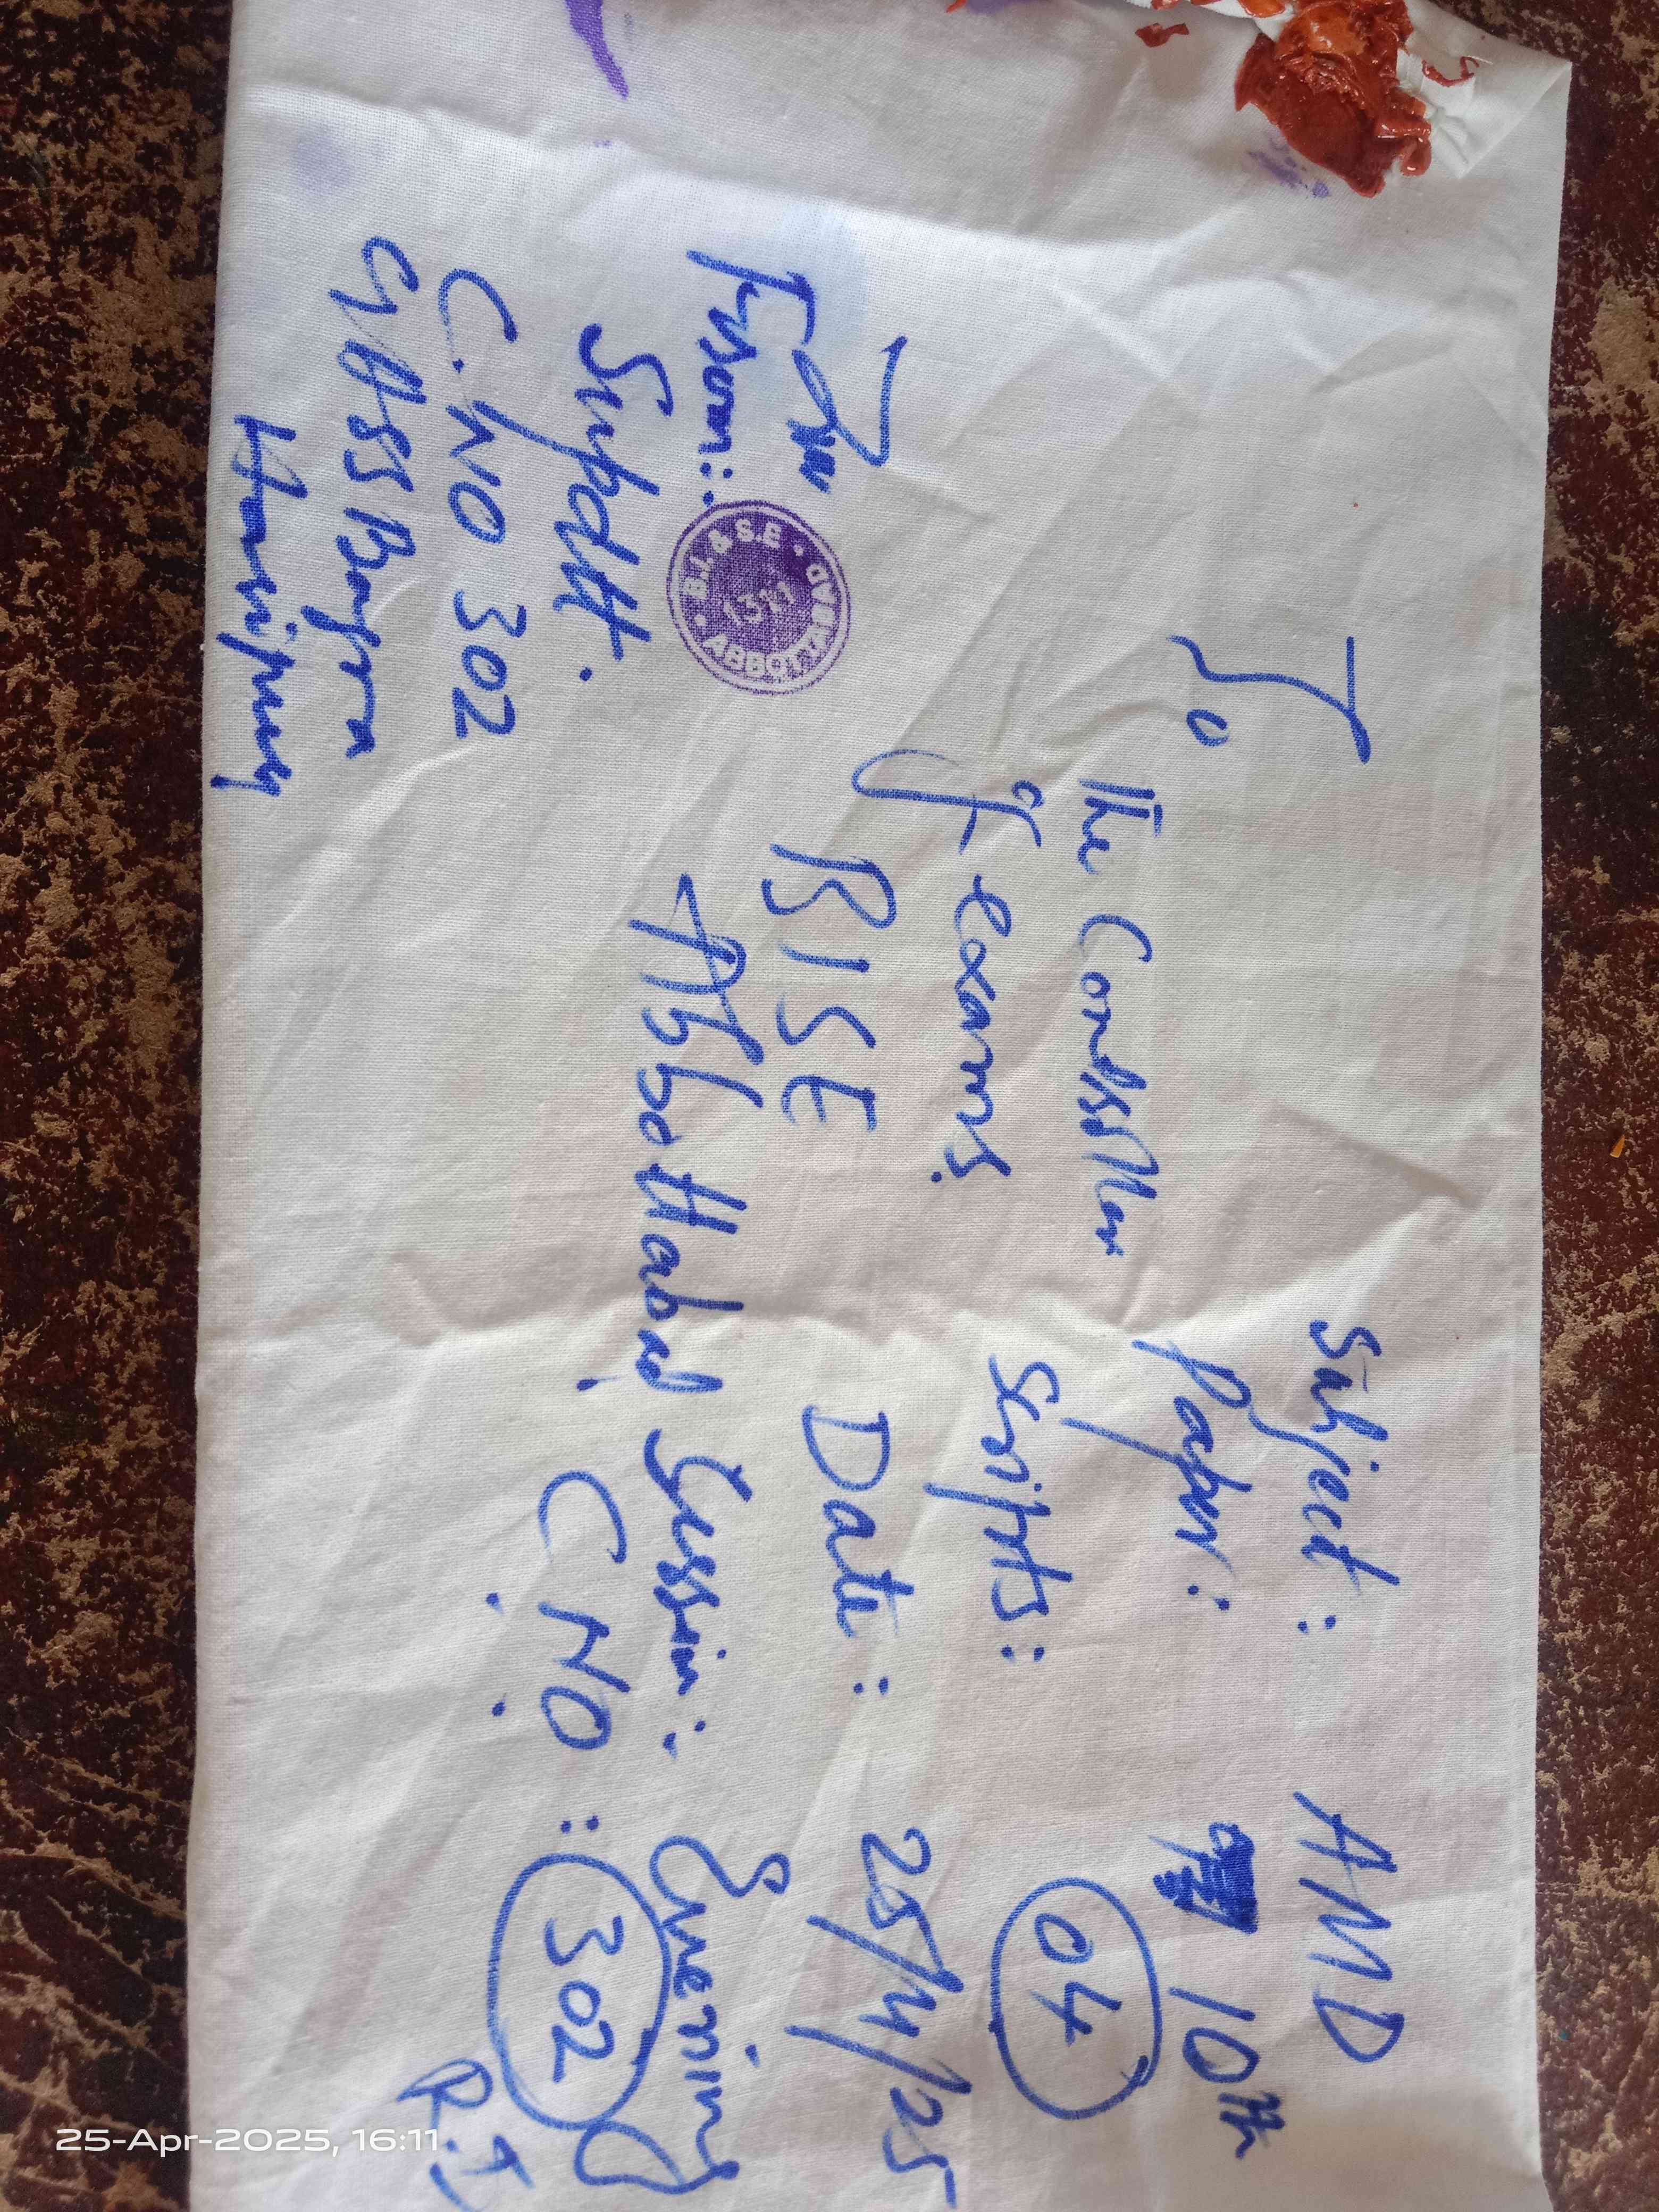 To
The Controller
of exams.
BISE
Abbottabad.
Subject : AMD
Paper : 10th
Scripts : 04
Date : 25/4/25
Session : Evening
C. NO. : 302
From :
Supdtt.
C. NO 302
GHSS Bagra
Haripur
B.I. & S.E • ABBOTTABAD •
25-Apr-2025, 16:11